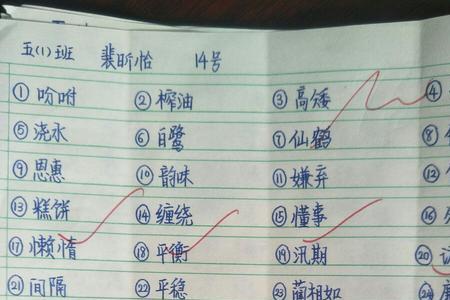 五(1)班 裴昕怡 14号
①吩咐 ②榨油 ③高矮 ④
⑤浇水 ⑥白鹭 ⑦仙鹤 ⑧
⑨恩惠 ⑩韵味 ⑪嫌弃 ⑫
⑬糕饼 ⑭缠绕 ⑮懂事 ⑯
⑰懒惰 ⑱平衡 ⑲汛期 ⑳
㉑间隔 ㉒平稳 ㉓蔺相如 ㉔